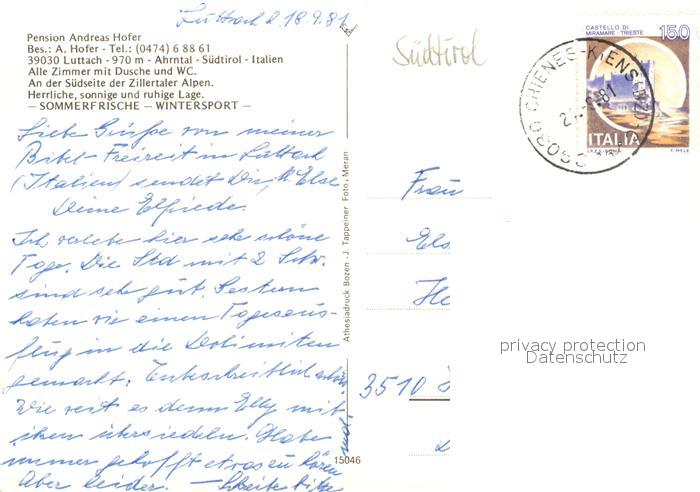 Luttach d. 18.9.81
Pension Andreas Hofer
Bes.: A. Hofer - Tel.: (0474) 6 88 61
39030 Luttach - 970 m - Ahrntal - Südtirol - Italien
Alle Zimmer mit Dusche und WC.
An der Südseite der Zillertaler Alpen.
Herrliche, sonnige und ruhige Lage.
— SOMMERFRISCHE — WINTERSPORT —
Liebe Grüße von meiner
Bibel-Freizeit in Luttach
(Italien) sendet Dir, Else
Deine Elfriede.
Ich erlebe hier sehr schöne
Tage. Die Std mit 2 Schw.
sind sehr gut. Gestern
haben wir einen Tagesaus-
flug in die Dolimiten
gemacht. Unbeschreiblich schön.
Wie weit es denn Elly mit
ihren übersiedeln. Habe
immer gehofft etwas zu hören
Aber leider. — Schreibe bitte
mal.
Athesiadruck Bozen - J. Tappeiner Foto, Meran
15046
Südtirol
CASTELLO DI
MIRAMARE - TRIESTE
150
ITALIA
CHIENES-KIENS (BZ)
Frau
Els
He
3510
privacy protection
Datenschutz